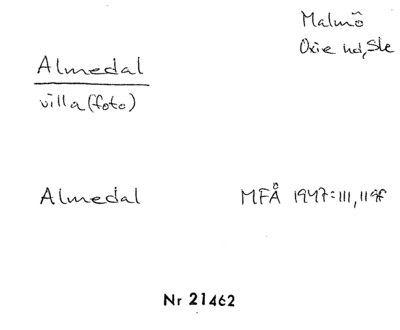 Malmö
Oxie hd, Ske
Almedal
villa (foto)
Almedal MFÅ 1947:111, 119f
Nr 21462